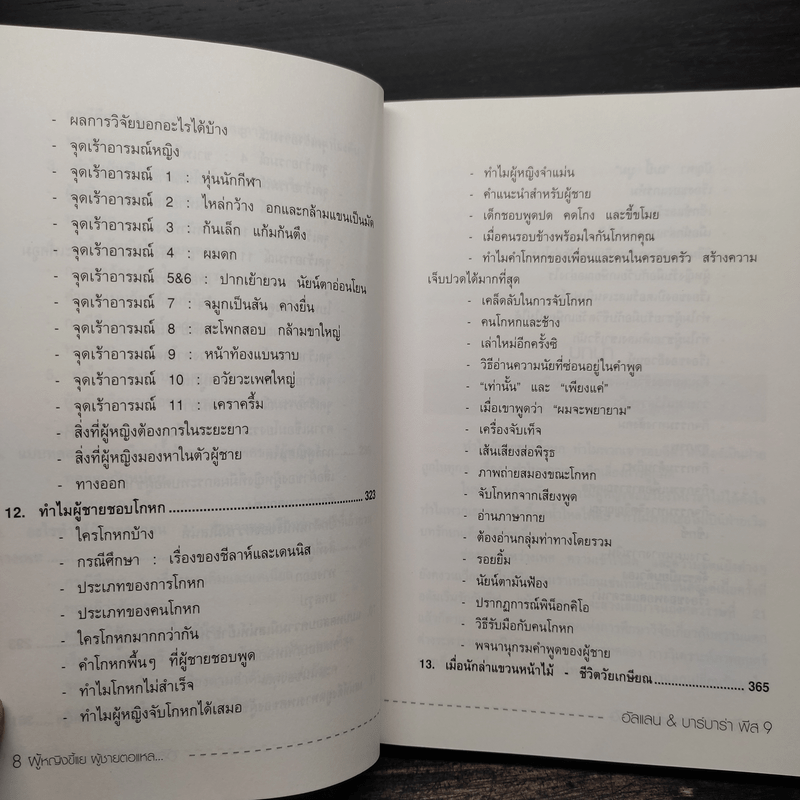 - ผลการวิจัยบอกอะไรได้บ้าง
- จุดเร้าอารมณ์หญิง
- จุดเร้าอารมณ์ 1 : หุ่นนักกีฬา
- จุดเร้าอารมณ์ 2 : ไหล่กว้าง อกและกล้ามแขนเป็นมัด
- จุดเร้าอารมณ์ 3 : ก้นเล็ก แก้มก้นตึง
- จุดเร้าอารมณ์ 4 : ผมดก
- จุดเร้าอารมณ์ 5&6 : ปากเย้ายวน นัยน์ตาอ่อนโยน
- จุดเร้าอารมณ์ 7 : จมูกเป็นสัน คางยื่น
- จุดเร้าอารมณ์ 8 : สะโพกสอบ กล้ามขาใหญ่
- จุดเร้าอารมณ์ 9 : หน้าท้องแบนราบ
- จุดเร้าอารมณ์ 10 : อวัยวะเพศใหญ่
- จุดเร้าอารมณ์ 11 : เคราครึ้ม
- สิ่งที่ผู้หญิงต้องการในระยะยาว
- สิ่งที่ผู้หญิงมองหาในตัวผู้ชาย
- ทางออก
12. ทำไมผู้ชายชอบโกหก ........ 323
- ใครโกหกบ้าง
- กรณีศึกษา : เรื่องของชีลาห์และเดนนิส
- ประเภทของการโกหก
- ประเภทของคนโกหก
- ใครโกหกมากกว่ากัน
- คำโกหกพื้นๆ ที่ผู้ชายชอบพูด
- ทำไมโกหกไม่สำเร็จ
- ทำไมผู้หญิงจับโกหกได้เสมอ
8 ผู้หญิงขี้แย ผู้ชายตอแหล...
- ทำไมผู้หญิงจำแม่น
- คำแนะนำสำหรับผู้ชาย
- เด็กชอบพูดปด คดโกง และขี้ขโมย
- เมื่อคนรอบข้างพร้อมใจกันโกหกคุณ
- ทำไมคำโกหกของเพื่อนและคนในครอบครัว สร้างความ
เจ็บปวดได้มากที่สุด
- เคล็ดลับในการจับโกหก
- คนโกหกและช้าง
- เล่าใหม่อีกครั้งซิ
- วิธีอ่านความนัยที่ซ่อนอยู่ในคำพูด
- "เท่านั้น" และ "เพียงแค่"
- เมื่อเขาพูดว่า "ผมจะพยายาม"
- เครื่องจับเท็จ
- เส้นเสียงส่อพิรุธ
- ภาพถ่ายสมองขณะโกหก
- จับโกหกจากเสียงพูด
- อ่านภาษากาย
- ต้องอ่านกลุ่มท่าทางโดยรวม
- รอยยิ้ม
- นัยน์ตามันฟ้อง
- ปรากฏการณ์พิน็อกคิโอ
- วิธีรับมือกับคนโกหก
- พจนานุกรมคำพูดของผู้ชาย
13. เมื่อนักล่าแขวนหน้าไม้ - ชีวิตวัยเกษียณ ........ 365
อัลแลน & บาร์บาร่า พีส 9